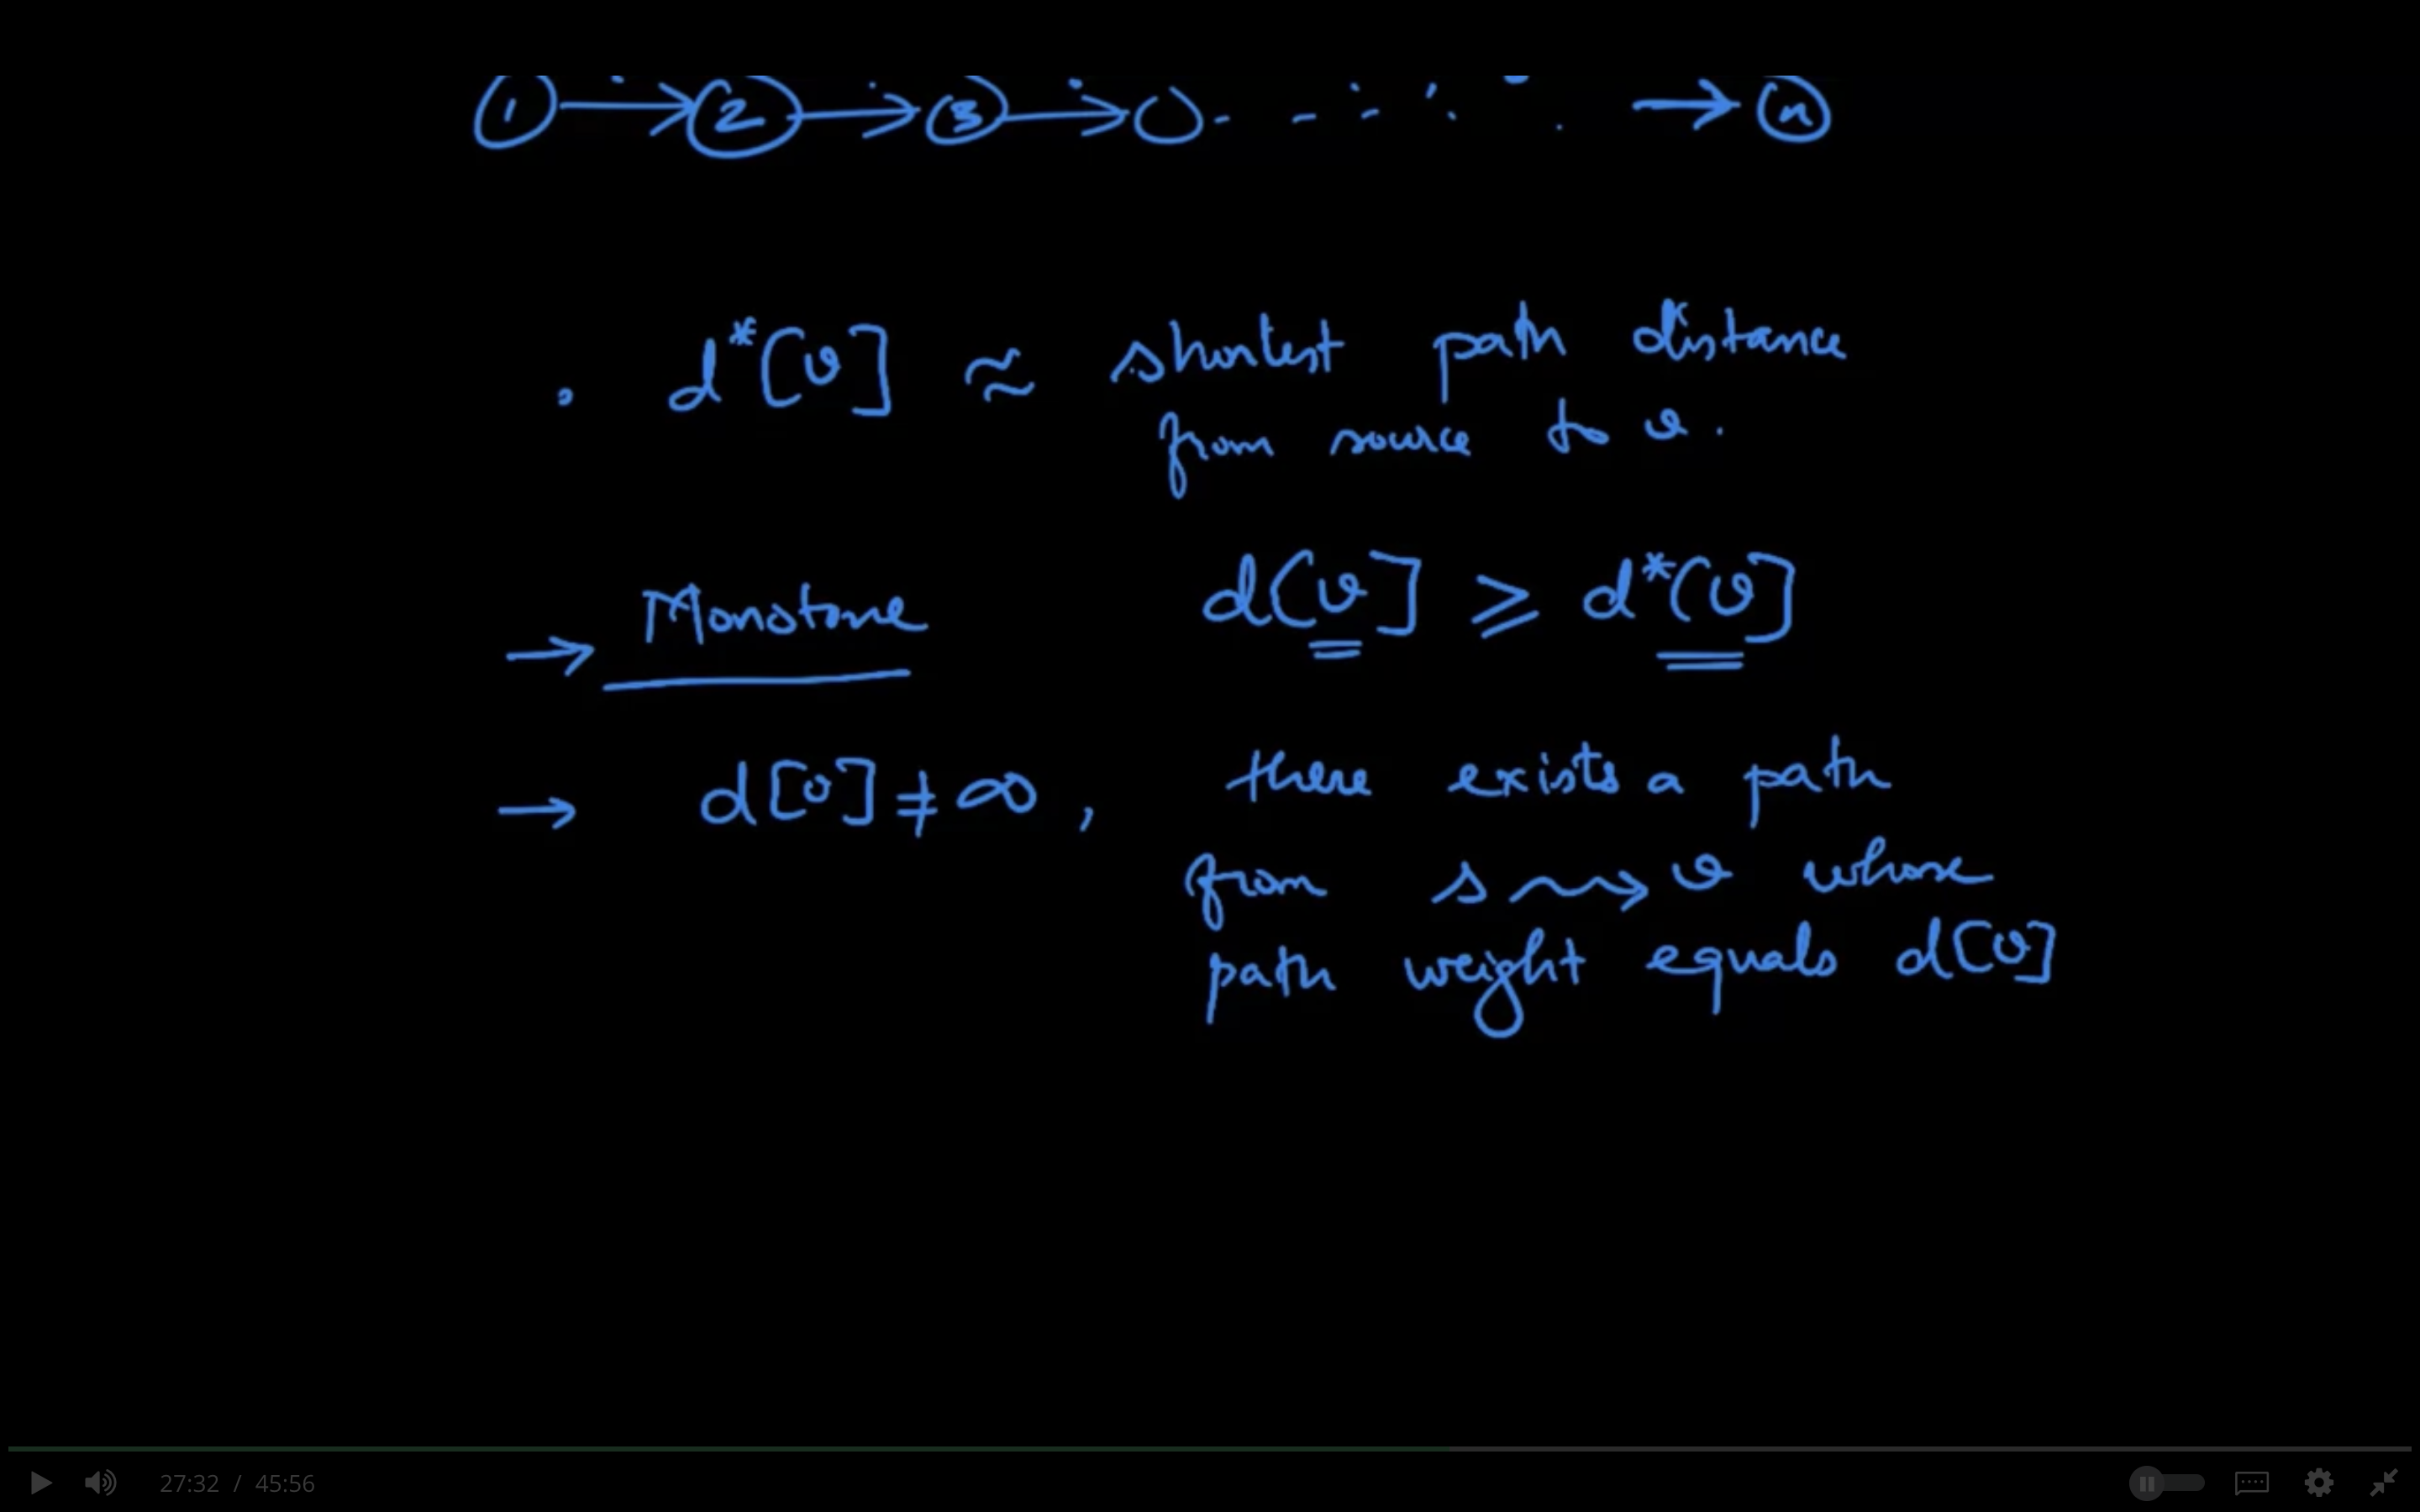 1 → 2 → 3 → ○ - - - - → n
• d*[v] ≈ shortest path distance
from source to v.
→ Monotone d[v] ≥ d*[v]
→ d[v] ≠ ∞, there exists a path
from s ⇝ v whose
path weight equals d[v]
27:32 / 45:56